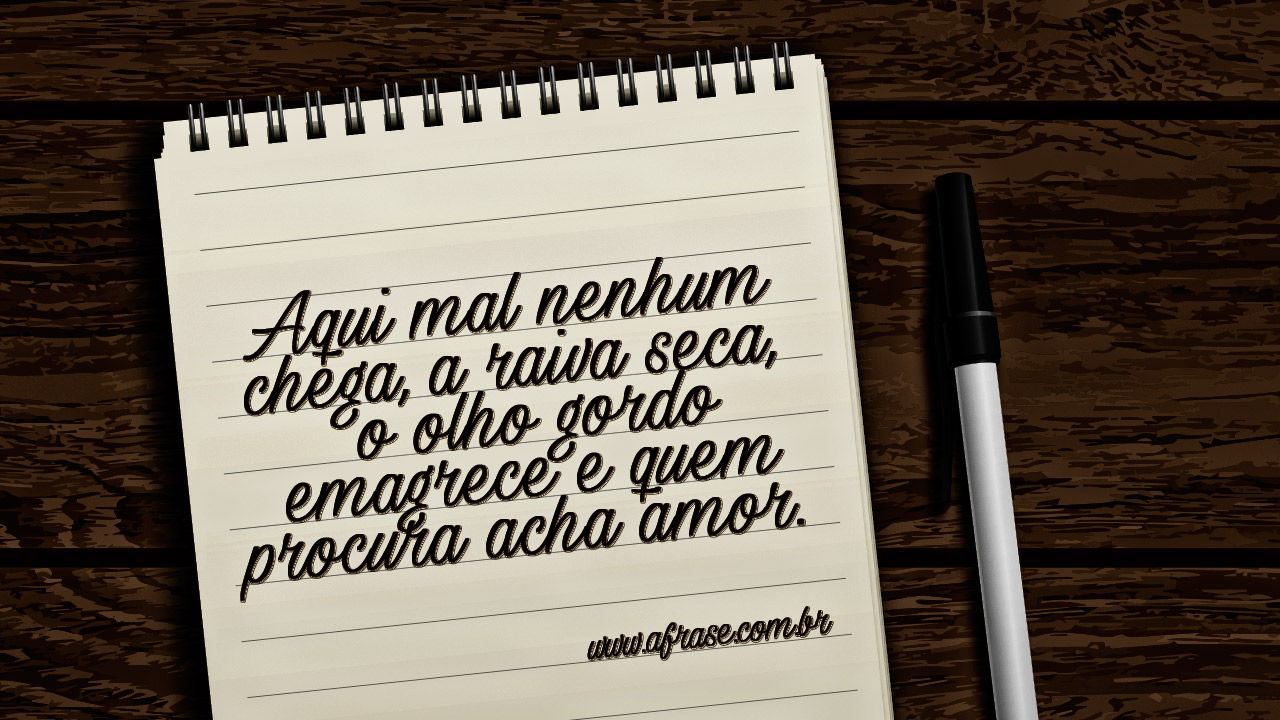 Aqui mal nenhum
chega, a raiva seca,
o olho gordo
emagrece e quem
procura acha amor.
www.afrase.com.br